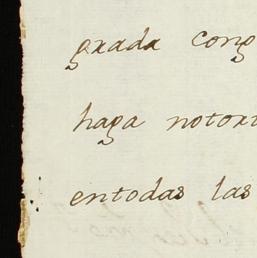 grada cong
haga notori
entodas las